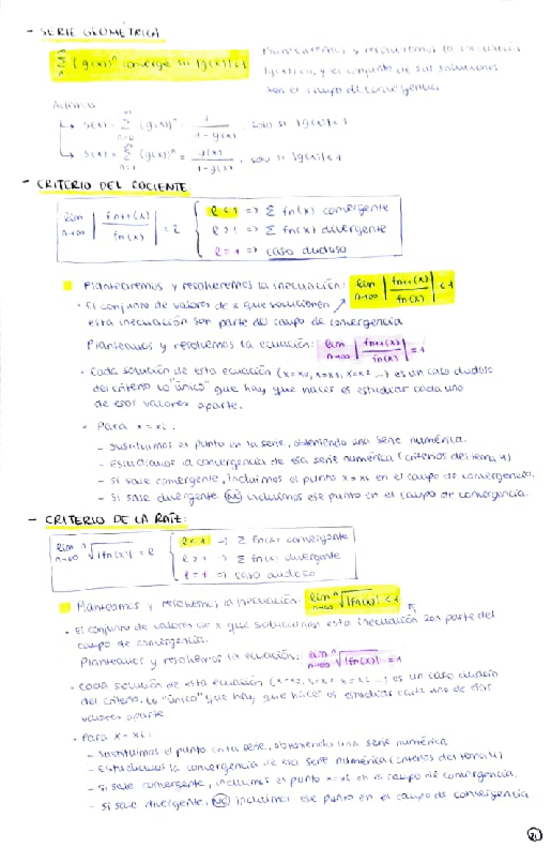 - SERIE GEOMÉTRICA
∑ (g(x))ⁿ converge sii |g(x)|<1
Plantearemos y resolveremos la inecuación
|g(x)|<1, y el conjunto de sus soluciones
son el campo de convergencia
Además
↳ S(x) = ∑ (g(x))ⁿ = 1/(1-g(x)), solo si |g(x)|<1
↳ S(x) = ∑ (g(x))ⁿ = g(x)/(1-g(x)), solo si |g(x)|<1
- CRITERIO DEL COCIENTE
lim n→∞ |fn+1(x)/fn(x)| = l
l<1 => ∑ fn(x) convergente
l>1 => ∑ fn(x) divergente
l=1 => caso dudoso
Plantearemos y resolveremos la inecuación: lim n→∞ |fn+1(x)/fn(x)| < 1
• El conjunto de valores de x que solucionen
esta inecuación son parte del campo de convergencia
Planteamos y resolvemos la ecuación: lim n→∞ |fn+1(x)/fn(x)| = 1
• Cada solución de esta ecuación (x=x0, x=x1, x=x2 ...) es un caso dudoso
del criterio. Lo "único" que hay que hacer es estudiar cada uno
de esos valores aparte.
• Para x=xi:
- Sustituimos el punto en la serie, obteniendo una serie numérica.
- Estudiamos la convergencia de esa serie numérica (criterios del tema 4)
- Si sale convergente, incluimos el punto x=xi en el campo de convergencia.
- Si sale divergente NO incluimos ese punto en el campo de convergencia.
- CRITERIO DE LA RAÍZ:
lim n→∞ ⁿ√|fn(x)| = l
l<1 => ∑ fn(x) convergente
l>1 => ∑ fn(x) divergente
l=1 => caso dudoso
Planteamos y resolvemos la inecuación: lim n→∞ ⁿ√|fn(x)| < 1
• El conjunto de valores de x que solucionan esta inecuación son parte del
campo de convergencia.
Planteamos y resolvemos la ecuación: lim n→∞ ⁿ√|fn(x)| = 1
• Cada solución de esta ecuación (x=x0, x=x1, x=x2 ...) es un caso dudoso
del criterio. Lo "único" que hay que hacer es estudiar cada uno de esos
valores aparte
• Para x=xi:
- Sustituimos el punto en la serie, obteniendo una serie numérica
- Estudiamos la convergencia de esa serie numérica (criterios del tema 4)
- Si sale convergente, incluimos el punto x=xi en el campo de convergencia.
- Si sale divergente, NO incluimos ese punto en el campo de convergencia
21